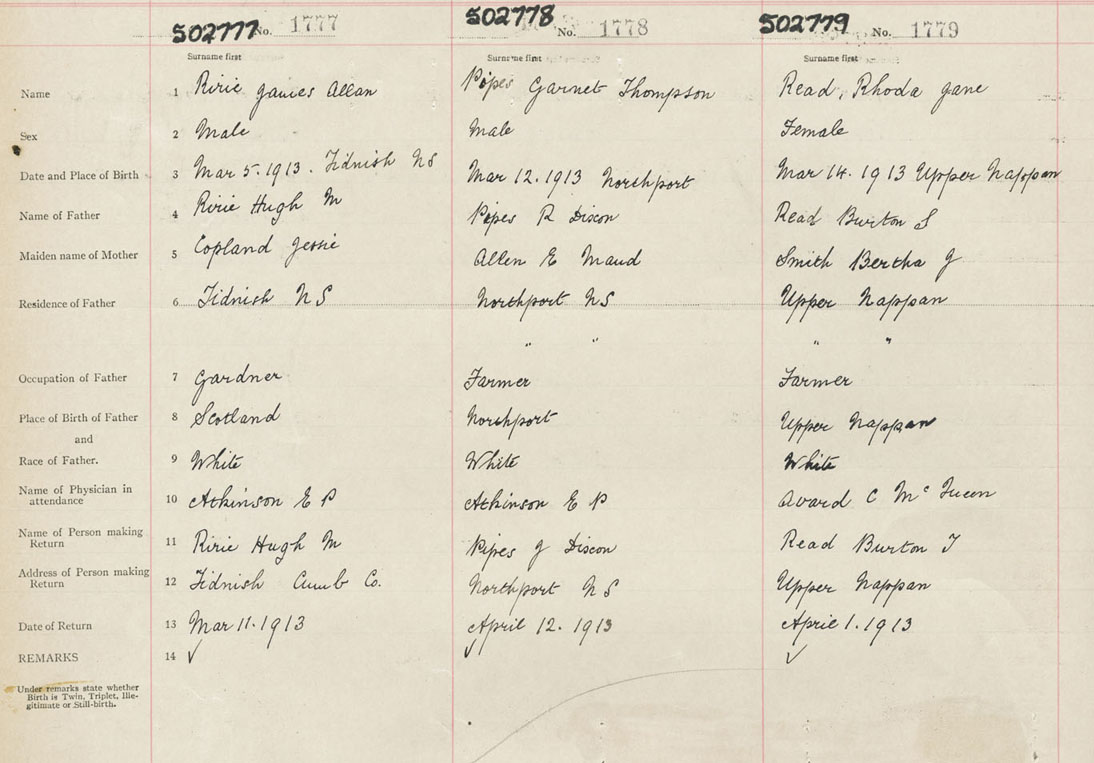 502777 No. 1777 502778 No. 1778 502779 No. 1779
Surname first Surname first Surname first
Name 1 Ririe James Allan Pipes Garnet Thompson Read, Rhoda Jane
Sex 2 Male Male Female
Date and Place of Birth 3 Mar 5. 1913. Tidnish NS Mar 12. 1913 Northport Mar 14. 1913 Upper Nappan
Name of Father 4 Ririe Hugh M Pipes R Dixon Read Burton S
Maiden name of Mother 5 Copland Jessie Allen E Maud Smith Bertha J
Residence of Father 6 Tidnish NS Northport NS Upper Nappan
" " " "
Occupation of Father 7 Gardner Farmer Farmer
Place of Birth of Father 8 Scotland Northport Upper Nappan
and
Race of Father. 9 White White White
Name of Physician in
attendance 10 Atkinson E P Atkinson E P Avard C Mc
Name of Person making
Return 11 Ririe Hugh M Pipes J Dixon Read Burton T
Address of Person making
Return 12 Tidnish Cumb Co. Northport NS Upper Nappan
Date of Return 13 Mar 11. 1913 April 12. 1913 April 1. 1913
REMARKS 14 ✓ ✓ ✓
Under remarks state whether
Birth is Twin, Triplet, Ille-
gitimate or Still-birth.